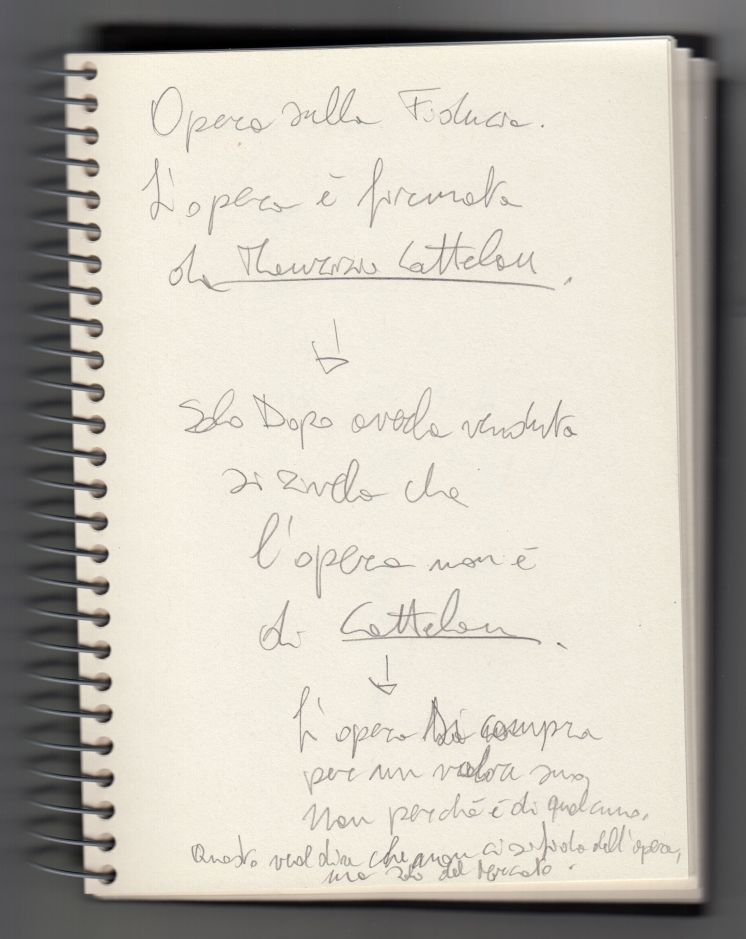 Opera sulla Fiducia.
L'opera è firmata
da Maurizio Cattelan.
Solo Dopo averla venduta
si rivela che
l'opera non è
di Cattelan.
L'opera si compra
per un valore suo,
Non perché è di qualcuno.
Questo vuol dire che non ci si fida dell'opera,
ma solo del Mercato.